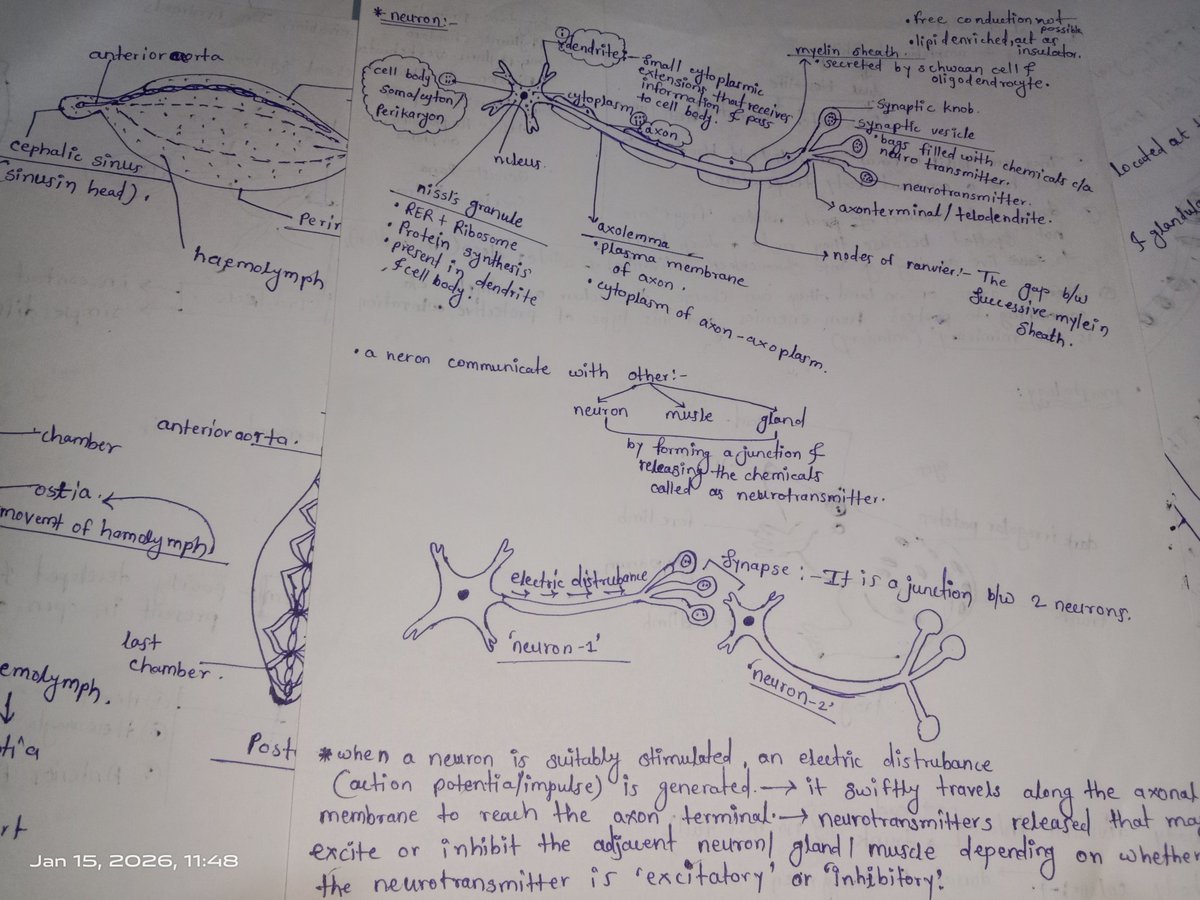 * neuron:-
• free conduction not
possible
• lipid enriched, act as
insulator.
myelin sheath.
• secreted by schwaan cell &
oligodendrocyte.
① dendrite:- small cytoplasmic
extensions that receives
information & pass
to cell body.
cell body
soma/cyton/
Perikaryon
cytoplasm
axon
nuleus.
Synaptic knob.
synaptic vesicle
• bags filled with chemicals c/a
neuro transmitter.
neurotransmitter.
axonterminal / telodendrite.
nissls granule
• RER + Ribosome
• Protein synthesis
• present in dendrite
& cell body.
axolemma
• plasma membrane
of axon.
• cytoplasm of axon - axoplasm.
nodes of ranvier:- The
gap b/w
successive mylein
Sheath.
• a neron communicate with other:-
neuron musle gland
by forming a junction &
releasing the chemicals
called as neurotransmitter.
electric distrubance
Synapse :- It is a junction b/w 2 neurons.
'neuron-1'
'neuron-2'
* when a neuron is suitably stimulated, an electric distrubance
(action potential/impulse) is generated. → it swiftly travels along the axonal
membrane to reach the axon terminal. → neurotransmitters released that ma
excite or inhibit the adjacent neuron/ gland/ muscle depending on whether
the neurotransmitter is 'excitatory' or 'Inhibitory'.
anterior aorta
cephalic sinus
(sinus in head).
Perir
haemolymph
chamber
anterior aorta.
ostia.
movemt of hamolymph
last
chamber.
emolymph.
↓
Post
rt
Located at
& glandula
Jan 15, 2026, 11:48